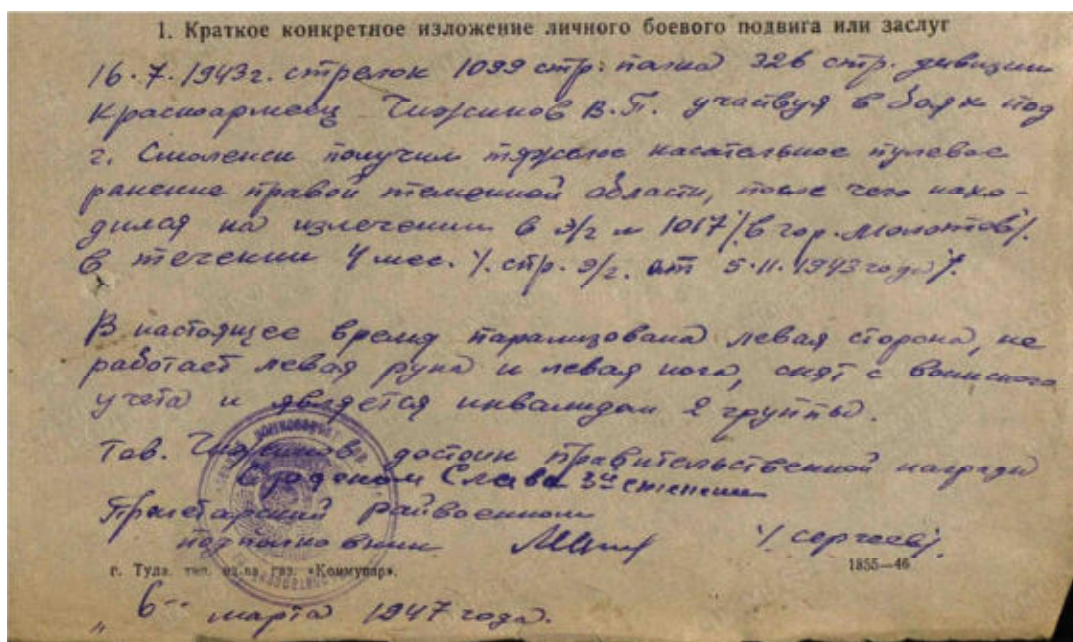 1. Краткое конкретное изложение личного боевого подвига или заслуг
16.7.1943г. стрелок 1099 стр: полка 326 стр. дивизии
Красноармеец Чижиков В.П. участвуя в боях под
г. Смоленск получил тяжелое касательное пулевое
ранение правой теменной области, после чего нахо-
дился на излечении в э/г № 1017 /в гор. Молотов/.
в течении 4 мес. /. стр. э/г. от 5.11.1943 года/.
В настоящее время парализована левая сторона, не
работает левая рука и левая нога, снят с воинского
учета и является инвалидом 2 группы.
Тов. Чижиков достоин правительственной награды
орденом Слава 3й степени
Пролетарский райвоенком
подполковник /Сергеев/.
г. Тула. тип. из-ва газ. «Коммунар». 1855—46
„ 6" марта 1947 года.